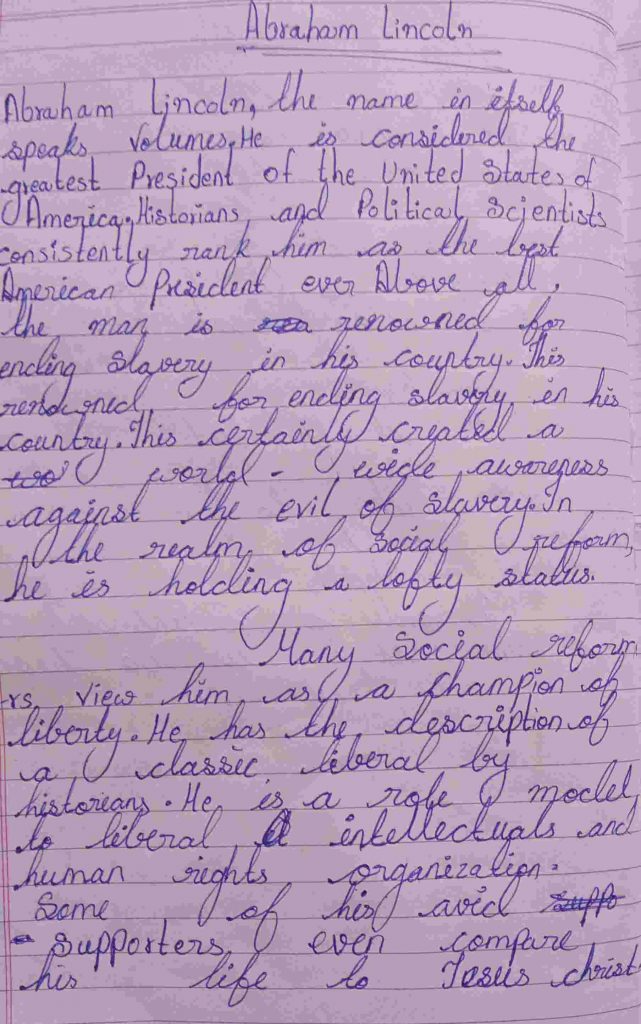 Abraham Lincoln
Abraham Lincoln, the name in itself
speaks volumes. He is considered the
greatest President of the United States of
America. Historians and Political Scientists
consistently rank him as the best
American President ever Above all,
the man is renowned for
ending Slavery in his country. This
renowned for ending slavery in his
country. This certainly created a
world - wide awareness
against the evil of slavery. In
the realm of social reform,
he is holding a lofty status.
Many Social reform
-rs view him as a champion of
liberty. He has the description of
a classic liberal by
historians. He is a role model
to liberal intellectuals and
human rights organization.
Some of his avid
- supporters even compare
his life to Jesus christ